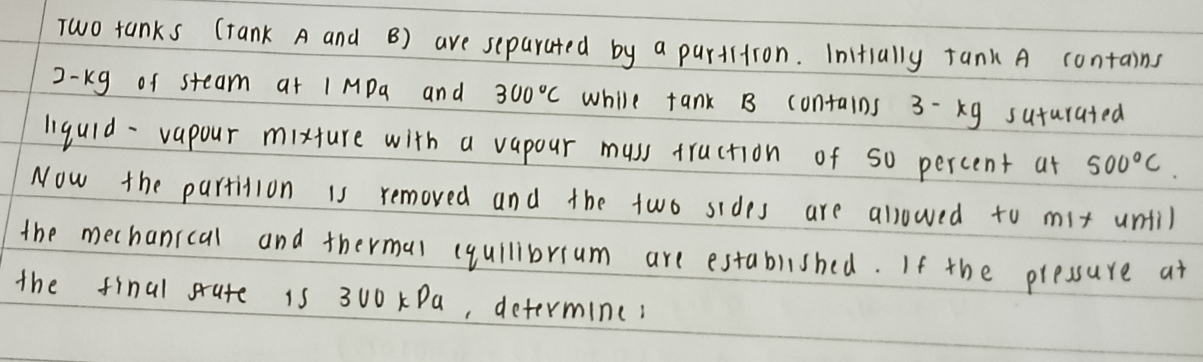 Two tanks (Tank A and B) are separated by a partition. Initially Tank A contains
2-kg of steam at 1 MPa and 300°C while tank B contains 3-kg saturated
liquid-vapour mixture with a vapour mass fraction of 50 percent at 500°C.
Now the partition is removed and the two sides are allowed to mix until
the mechanical and thermal equilibrium are established. If the pressure at
the final state is 300 kPa, determine: